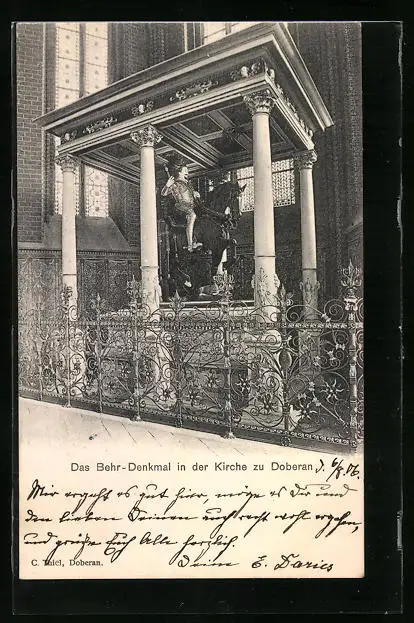 Das Behr-Denkmal in der Kirche zu Doberan, d. 6/8. 06.
Mir ergeht es gut hier, möge es Dir und
den lieben Deinen auch recht wohl ergehen,
und grüße Euch Alle herzlich.
Deine E. Daries
C. Thiel, Doberan.